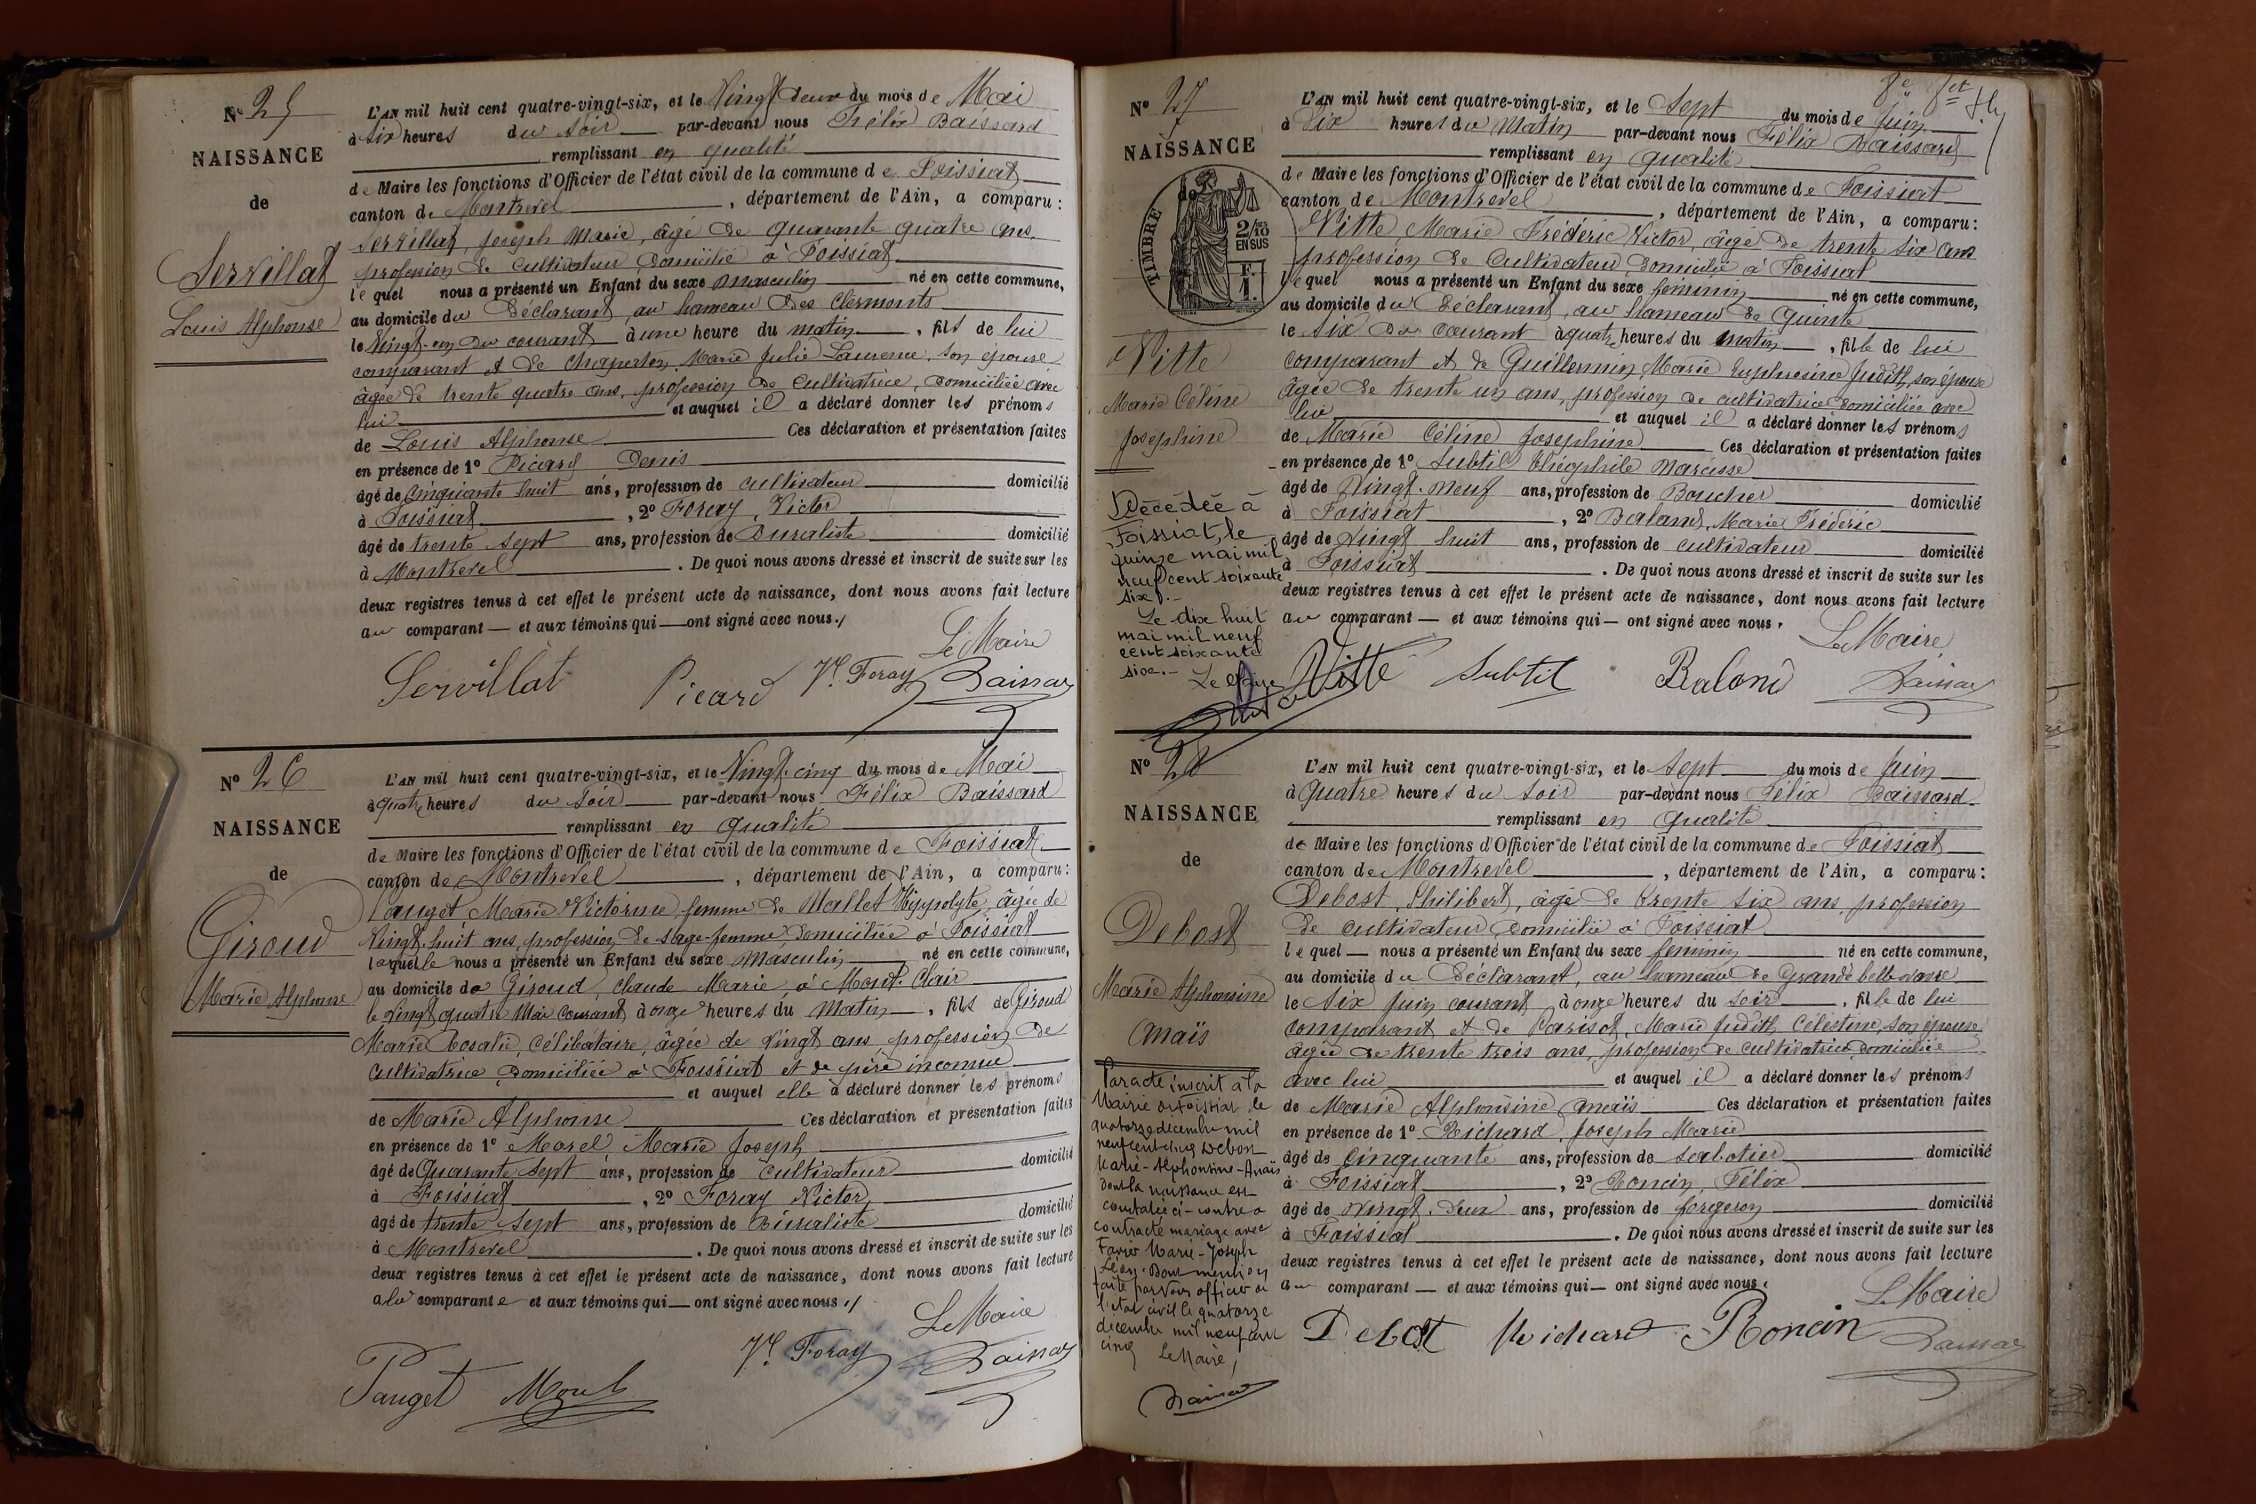 N° 25
NAISSANCE
de
Servillat
Louis Alphonse
L'AN mil huit cent quatre-vingt-six, et le Vingt deux du mois de Mai
à six heures du soir par-devant nous Félix Baissard
remplissant en qualité
de Maire les fonctions d'Officier de l'état civil de la commune de Foissiat
canton de Montrevel, département de l'Ain, a comparu:
Servillat, Joseph Marie, âgé de quarante quatre ans,
profession de cultivateur, domicilié à Foissiat
lequel nous a présenté un Enfant du sexe masculin né en cette commune,
au domicile du déclarant, au hameau des Clermonts
le Vingt-un du courant à une heure du matin, fils de lui
comparant et de Chaperton, Marie Julie Laurence, son épouse
âgée de trente quatre ans, profession de cultivatrice, domiciliée avec
lui et auquel il a déclaré donner les prénoms
de Louis Alphonse Ces déclaration et présentation faites
en présence de 1° Picard Denis
âgé de Cinquante huit ans, profession de cultivateur domicilié
à Foissiat, 2° Foray, Victor
âgé de trente sept ans, profession de Buraliste domicilié
à Montrevel. De quoi nous avons dressé et inscrit de suite sur les
deux registres tenus à cet effet le présent acte de naissance, dont nous avons fait lecture
au comparant — et aux témoins qui — ont signé avec nous./
Le Maire
Servillat Picard Vr Foray Baissard
N° 26
NAISSANCE
de
Giroud
Marie Alphonse
L'AN mil huit cent quatre-vingt-six, et le Vingt-cinq du mois de Mai
à quatre heures du soir par-devant nous Félix Baissard
remplissant en qualité
de Maire les fonctions d'Officier de l'état civil de la commune de Foissiat
canton de Montrevel, département de l'Ain, a comparu:
Pauget, Marie Victorine, femme de Mallet Hippolyte, âgée de
Vingt huit ans, profession de sage-femme, domiciliée à Foissiat
laquelle nous a présenté un Enfant du sexe Masculin né en cette commune,
au domicile de Giroud, Claude Marie, à Mont-Clair
le Vingt quatre Mai courant à onze heures du Matin, fils de Giroud
Marie Rosalie, célibataire, âgée de vingt ans, profession de
cultivatrice domiciliée à Foissiat et de père inconnu
et auquel elle a déclaré donner les prénoms
de Marie Alphonse Ces déclaration et présentation faites
en présence de 1° Morel Marie Joseph
âgé de Quarante sept ans, profession de cultivateur domicilié
à Foissiat, 2° Foray Victor
âgé de trente sept ans, profession de Buraliste domicilié
à Montrevel. De quoi nous avons dressé et inscrit de suite sur les
deux registres tenus à cet effet le présent acte de naissance, dont nous avons fait lecture
à la comparante et aux témoins qui — ont signé avec nous./
Le Maire
Pauget Morel Vr Foray Baissard
N° 27
NAISSANCE
de
TIMBRE
2/10
EN SUS
Vitte
Marie Céline
Joséphine
Décédée à
Foissiat, le
quinze mai mil
neuf cent soixante
six.-
Le dix huit
mai mil neuf
cent soixante
six.-
L'AN mil huit cent quatre-vingt-six, et le Sept du mois de Juin
à Six heures du Matin par-devant nous Félix Baissard
remplissant en qualité
de Maire les fonctions d'Officier de l'état civil de la commune de Foissiat
canton de Montrevel, département de l'Ain, a comparu:
Vitte, Marie Frédéric Victor, âgé de trente six ans
profession de Cultivateur, domicilié à Foissiat
lequel nous a présenté un Enfant du sexe féminin né en cette commune,
au domicile du déclarant, au hameau de Quinte
le Six du courant à quatre heures du matin, fille de lui
comparant et de Guillermin, Marie Euphrosine Judith, son épouse
âgée de trente un ans, profession de cultivatrice domiciliée avec
lui et auquel il a déclaré donner les prénoms
de Marie Céline Joséphine Ces déclaration et présentation faites
en présence de 1° Subtil Théophile Narcisse
âgé de Vingt-neuf ans, profession de Boucher domicilié
à Foissiat, 2° Baland, Marie Frédéric
âgé de Vingt huit ans, profession de cultivateur domicilié
à Foissiat. De quoi nous avons dressé et inscrit de suite sur les
deux registres tenus à cet effet le présent acte de naissance, dont nous avons fait lecture
au comparant — et aux témoins qui — ont signé avec nous.
Le Maire
Vitte Subtil Baland Baissard
N° 28
NAISSANCE
de
Debost
Marie Alphonsine
Anaïs
Par acte inscrit à la
Mairie de Foissiat le
quatorze décembre mil
neuf cent cinq Debost
Marie-Alphonsine-Anaïs
dont la naissance est
constatée ci-contre a
contracté mariage avec
Favier Marie-Joseph
Léon. Dont mention
faite par nous officier de
l'état civil le quatorze
décembre mil neuf cent
cinq
Le Maire,
Baissard
L'AN mil huit cent quatre-vingt-six, et le Sept du mois de Juin
à Quatre heures du soir par-devant nous Félix Baissard
remplissant en qualité
de Maire les fonctions d'Officier de l'état civil de la commune de Foissiat
canton de Montrevel, département de l'Ain, a comparu:
Debost, Philibert, âgé de trente six ans, profession
de cultivateur, domicilié à Foissiat
lequel — nous a présenté un Enfant du sexe féminin né en cette commune,
au domicile du déclarant, au hameau de Grande belle vavre
le Six Juin courant à onze heures du soir, fille de lui
comparant et de Parisot, Marie Judith Célestine, son épouse
âgée de trente trois ans, profession de cultivatrice, domiciliée
avec lui et auquel il a déclaré donner les prénoms
de Marie Alphonsine Anaïs Ces déclaration et présentation faites
en présence de 1° Reichard, Joseph Marie
âgé de Cinquante ans, profession de sabotier domicilié
à Foissiat, 2° Roncin, Félix
âgé de Vingt-deux ans, profession de forgeron domicilié
à Foissiat. De quoi nous avons dressé et inscrit de suite sur les
deux registres tenus à cet effet le présent acte de naissance, dont nous avons fait lecture
au comparant — et aux témoins qui — ont signé avec nous.
Le Maire
Debost Reichard Roncin Baissard